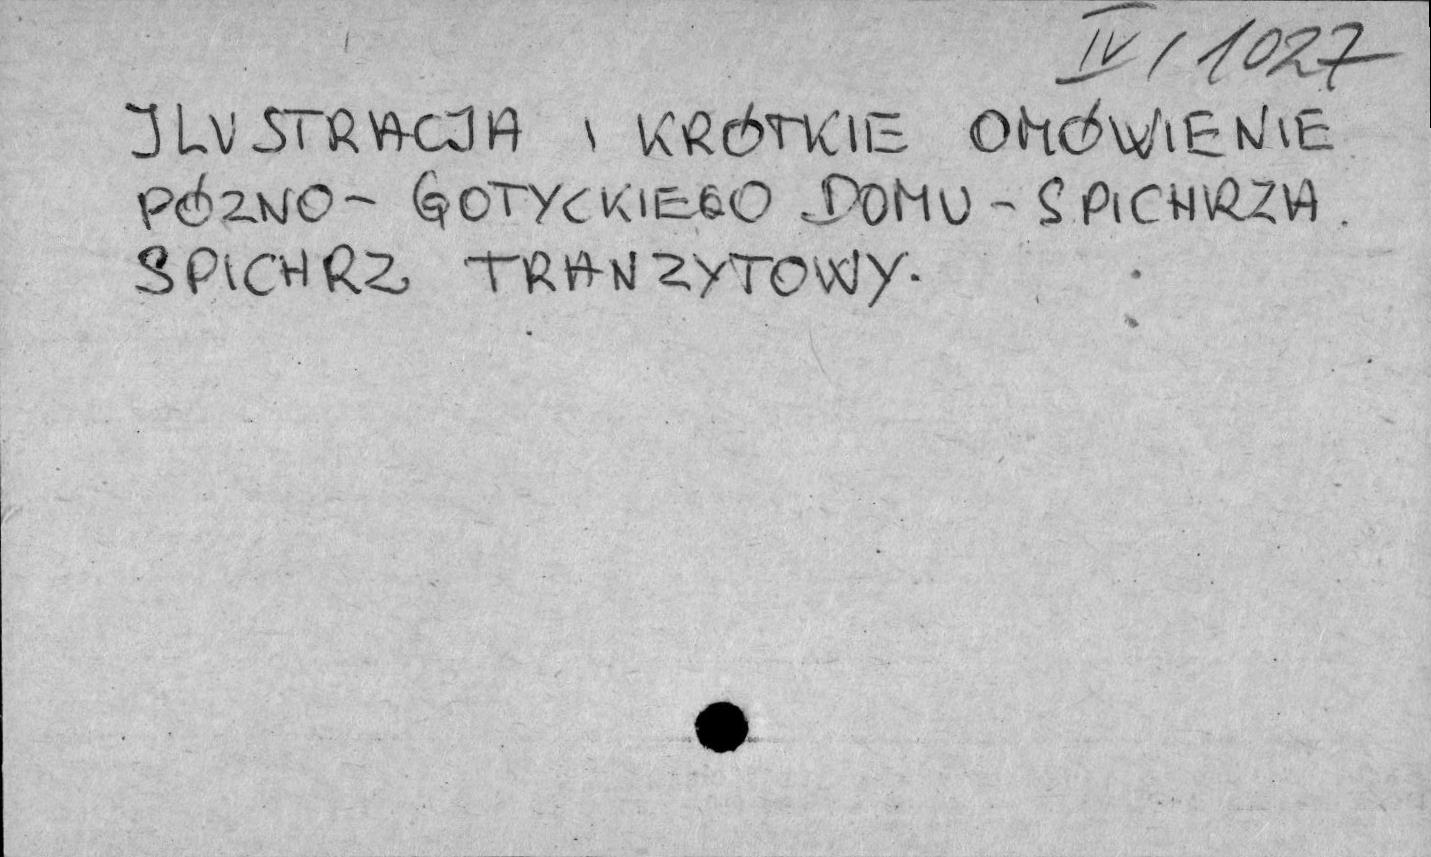 IV/1027
ILUSTRACJA I KRÓTKIE OMÓWIENIE
PÓZNO- GOTYCKIEGO DOMU-SPICHRZA.
SPICHRZ TRANZYTOWY.